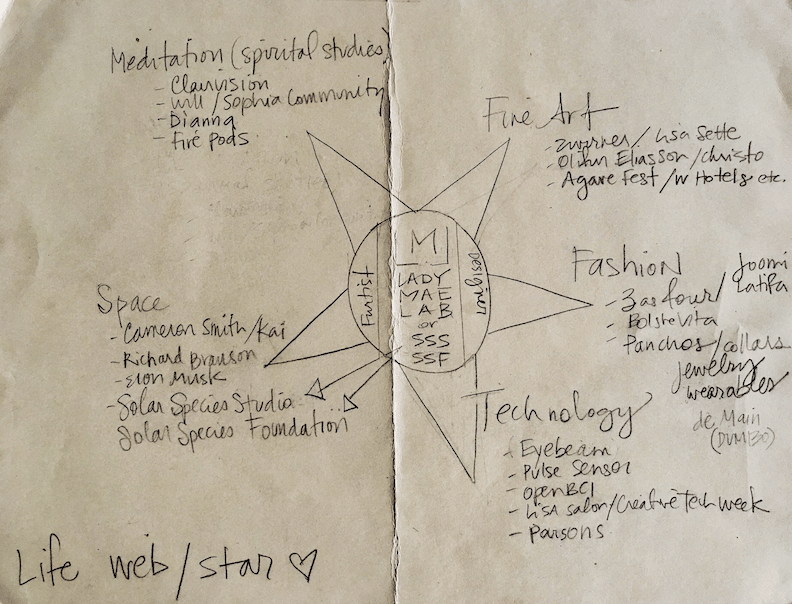 Meditation (spirital studies)
- Clairvision
- Will / Sophia Community
- Dianna
- Fire Pods
Fine Art
- Zwirner / Lisa Sette
- Olafur Eliasson / Christo
- Agave Fest / W Hotels etc.
M
LADY
MAE
LAB
or
SSS
SSF
Designer
Fashion
- 3 as four /
Joomi
Latifa
- Bolshevita
- Panchos / collars
Jewelry
wearables
de Main
(DUMBO)
Space
- Cameron Smith / Kai
- Richard Branson
- Elon Musk
- Solar Species Studio
Solar Species Foundation
Technology
- Eyebeam
- Pulse Sensor
- OpenBCI
- LISA Salon / Creative Tech Week
- Parsons
Life web / star ♡